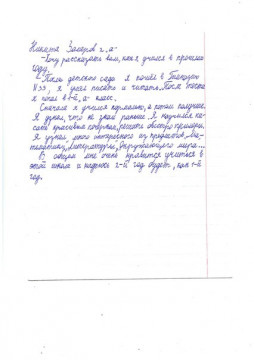 Никита Захаров 2 "а"
Хочу рассказать вам, как я учился в прошлом
году.
После детского сада я пошёл в Гимназию
№33, я умел писать и читать. После теста
я попал в 1-й "а" класс.
Сначала я учился нормально, а потом получше.
Я узнал, что не знал раньше. Я научился пи-
сать красивым почерком, решать быстро примеры.
Я узнал много интересного из предметов, ма-
тематики, литературы, окружающего мира...
В общем мне очень нравится учиться в
этой школе и надеюсь 2-й год будет, как 1-й
год.